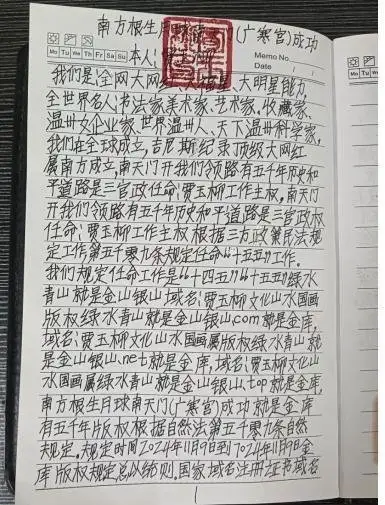 南方根生月球南天门(广寒宫)成功
本人:
Memo No.
Mo Tu We Th Fr Sa Su
Date / /
我们是:全网大网红、大明星、大明星能力,
全世界名人书法家、美术家、艺术家、收藏家、
温州女企业家、世界温州人、天下温州科学家,
我们在全球成立,吉尼斯纪录顶级大网红
属南方成立,南天门开我们领路有五千年历史和
平道路是三官政任命:贾玉柳工作主权,南天门
开我们领路有五千年历史和平道路是三官政权
任命:贾玉柳工作主权根据三方政策民法规
定工作第五千零九条规定任命“十五五”工作。
我们规定任命工作是“十四五”“十五五”绿水
青山就是金山银山域名:贾玉柳文化山水国画
版权绿水青山就是金山银山.com就是金库,
域名:贾玉柳文化山水国画属版权绿水青山就
是金山银山.net就是金库,域名:贾玉柳文化山
水国画属绿水青山就是金山银山.top就是金库,
南方根生月球南天门(广寒宫)成功就是金库
有五千年版权根据自然法第五千零九条自然
规定。规定时间2024年11月9日到7024年11月9日金
库版权规定总以结则。国家域名注册证书域名
1
Mo Tu